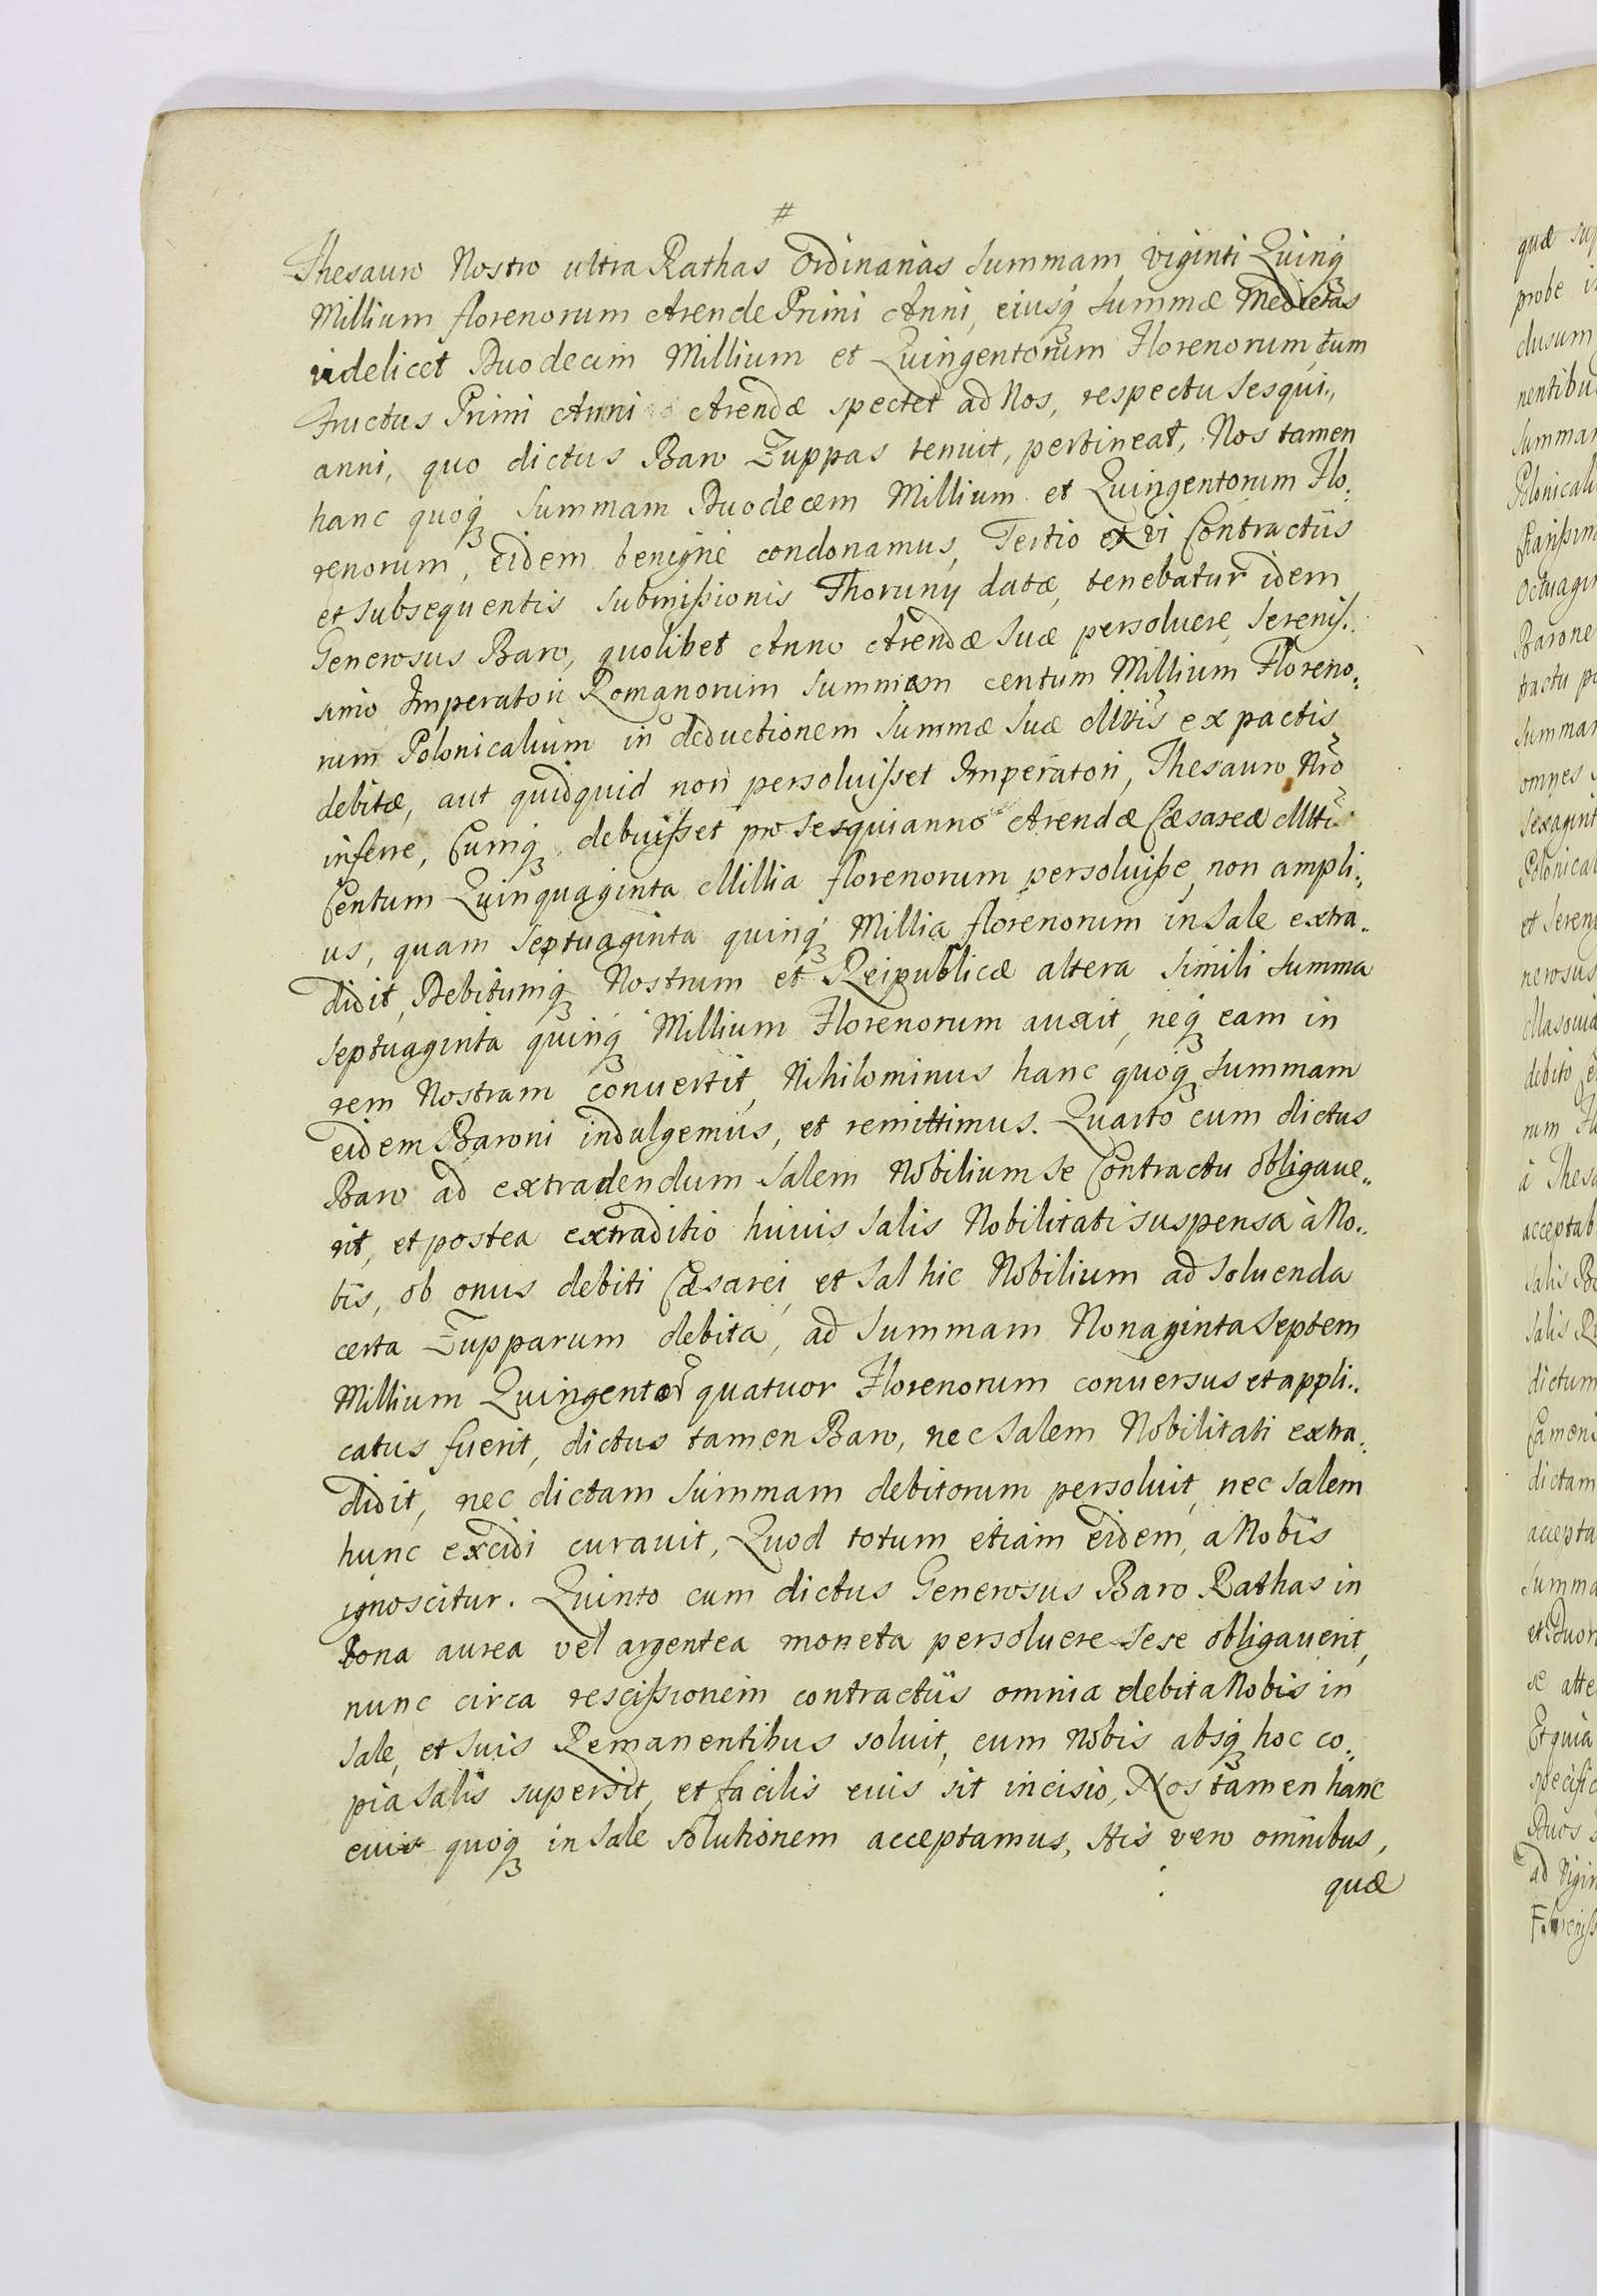 #
Thesauro Nostro ultra Rathas Ordinarias Summam viginti Quinq
Millium florenorum Arende Primi Anni, eiusq Summæ Medietas
videlicet Duodecim Millium et Quingentorum Florenorum, tum
Fructus Primi Anni Arendæ spectet ad Nos, respectu Sesqui:,
anni, quo dictus Baro Zuppas tenuit, pertineat, Nos tamen
hanc quoq Summam Duodecem Millium et Quingentorum Flo:
renorum, eidem benigne condonamus, Tertio ex vi Contractus
et subsequentis submißionis Thorunÿ datæ, tenebatur idem
Generosus Baro, quolibet Anno Arendæ Suæ persoluere Sereniß:
simo Imperatori Romanorum Summam centum Millium Floreno:
rum Polonicalium in deductionem Summæ Suæ Mttis ex pactis
debitæ, aut quidquid non persoluißet Imperatori, Thesauro Nro
inferre, Cumq debuißet pro Sesquianno Arendæ Cæsareæ Mtti
Centum Quinquaginta Millia florenorum persoluiße, non ampli:,
us, quam Septuaginta quinq Millia florenorum in Sale extra:,
didit, Debitumq Nostrum et Reipublicæ altera Simili Summa
Septuaginta quinq Millium Florenorum auxit, neq eam in
rem Nostram conuertit, Nihilominus hanc quoq Summam
eidem Baroni indulgemus, et remittimus. Quarto cum dictus
Baro ad extradendum Salem Nobilium se Contractu obligaue:,
rit, et postea extraditio huius Salis Nobilitati suspensa à No:
bis, ob onus debiti Cæsarei, et Sal hic Nobilium ad Soluenda
certa Zupparum debita, ad Summam Nonaginta Septem
Millium Quingentor quatuor Florenorum conuersus et appli:
catus fuerit, dictus tamen Baro, nec Salem Nobilitati extra:
didit, nec dictam Summam debitorum persoluit, nec Salem
hunc excidi curauit, Quod totum etiam eidem, a Nobis
ignoscitur. Quinto cum dictus Generosus Baro Rathas in
bona aurea vel argentea moneta persoluere Sese obligauerit,
nunc circa rescißionem contractus omnia debita Nobis in
Sale, et Suis Remanentibus soluit, cum Nobis absq hoc co:
pia Salis supersit, et facilis eius sit incisio, Nos tamen hanc
eius quoq in Sale Solutionem acceptamus, His vero omnibus,
quæ